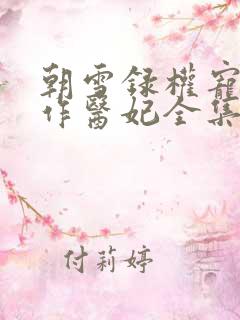 朝雪録權寵
作醫妃全集
付莉婷